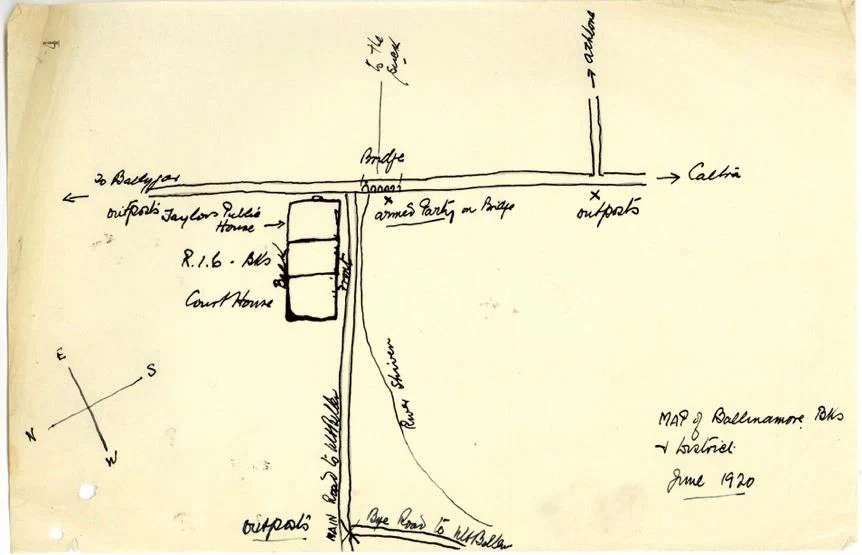 4
To the
Suck
→ Athlone
Bridge
To Ballygar
→ Caltra
outposts
Taylors Public
House →
armed Party on Bridge
outposts
R.I.C - BKs
Back
Front
Court House
E
S
N
W
River Shiven
MAIN Road to Mt Bellew
MAP of Ballinamore BKs
& District.
June 1920
outposts
Bye Road to Mt Bellew